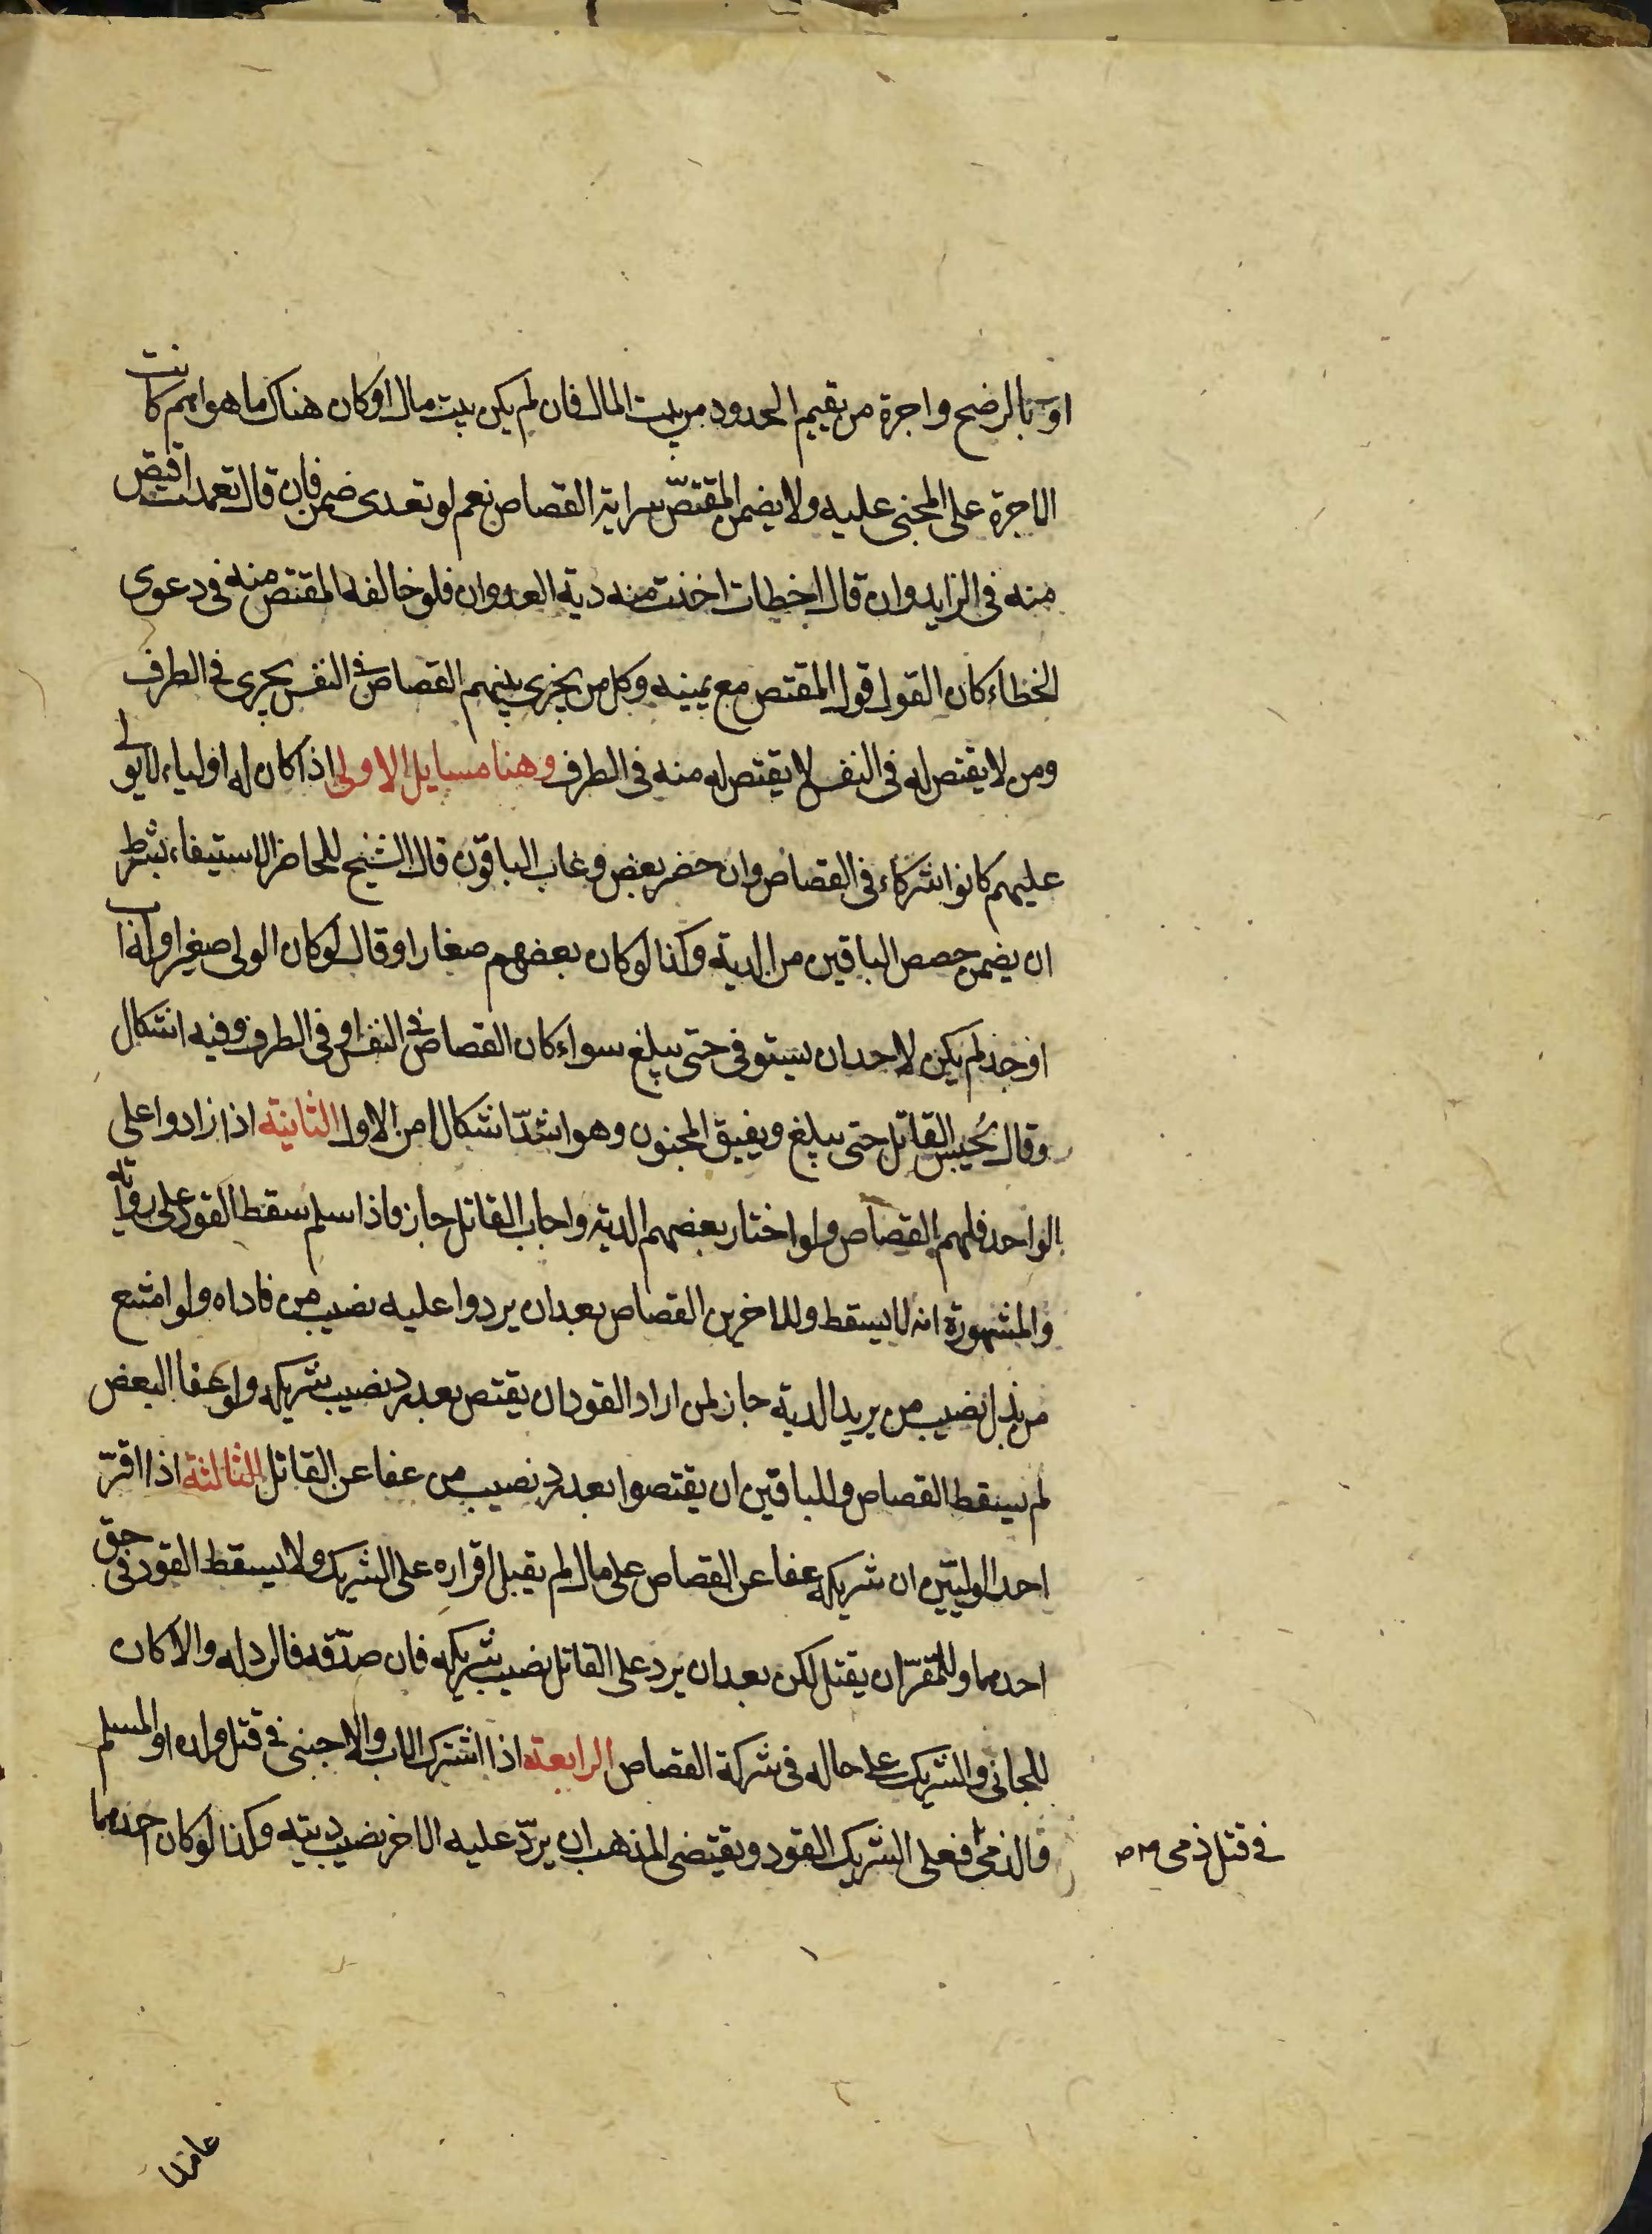 او بالرضح واجرة من يقيم الحدود من بيت المال فان لم يكن بيت مال او كان هناك ما هو اهم كانت
الاجرة على المجنى عليه ولا يضمن المقتصّ سراية القصاص نعم لو تعدى ضمن فان قال تعمدت اقتص
منه فى الزايد وان قال اخطات اخذت منه دية العدوان فلو خالفه المقتص منه فى دعوى
الخطاء كان القول قول المقتص مع يمينه وكل من يجرى بينهم القصاص فى النفس يجرى فى الطرف
ومن لا يقتص له فى النفس لا يقتص له منه فى الطرف وهنا مسايل الاولى اذا كان له اولياء لا يولى
عليهم كانوا شركاء فى القصاص وان حضر بعض وغاب الباقون قال الشيخ للحاضر الاستيفاء بشرط
ان يضمن حصص الباقين من الدية وكذا لو كان بعضهم صغارا وقال لو كان الولى صغيرا وله اب
او جد لم يكن لاحد ان يستوفى حتى يبلغ سواء كان القصاص فى النفس او فى الطرف وفيه اشكال
وقال يُحبس القاتل حتى يبلغ ويفيق المجنون وهو اشدّ اشكالا من الاول الثانية اذا زادوا على
الواحد فلهم القصاص ولو اختار بعضهم الدية واجاب القاتل جاز فاذا سلم سقط القود على رواية
والمشهورة انه لا يسقط وللاخرين القصاص بعد ان يردوا عليه نصيب من فاداه ولو امتنع
من بذل نصيب من يريد الدية جاز لمن اراد القود ان يقتص بعد رد نصيب شريكه ولو عفا البعض
لم يسقط القصاص وللباقين ان يقتصوا بعد رد نصيب من عفا عن القاتل الثالثة اذا اقرّ
احد الوليّين ان شريكه عفا عن القصاص على مال لم يقبل اقراره على الشريك ولا يسقط القود فى حق
احدهما وللمقرّ ان يقتل لكن بعد ان يرد على القاتل نصيب شريكه فان صدّقه فالرد له والا كان
للجانى والشريك على حاله فى شركة القصاص الرابعة اذا اشترك الاب والاجنبى فى قتل ولده او المسلم
والذمى فعلى الشريك القود ويقتضى المذهب ان يردّ عليه الاخر نصيب ديته وكذا لو كان احدهما
فى قتل ذمى
عامدا